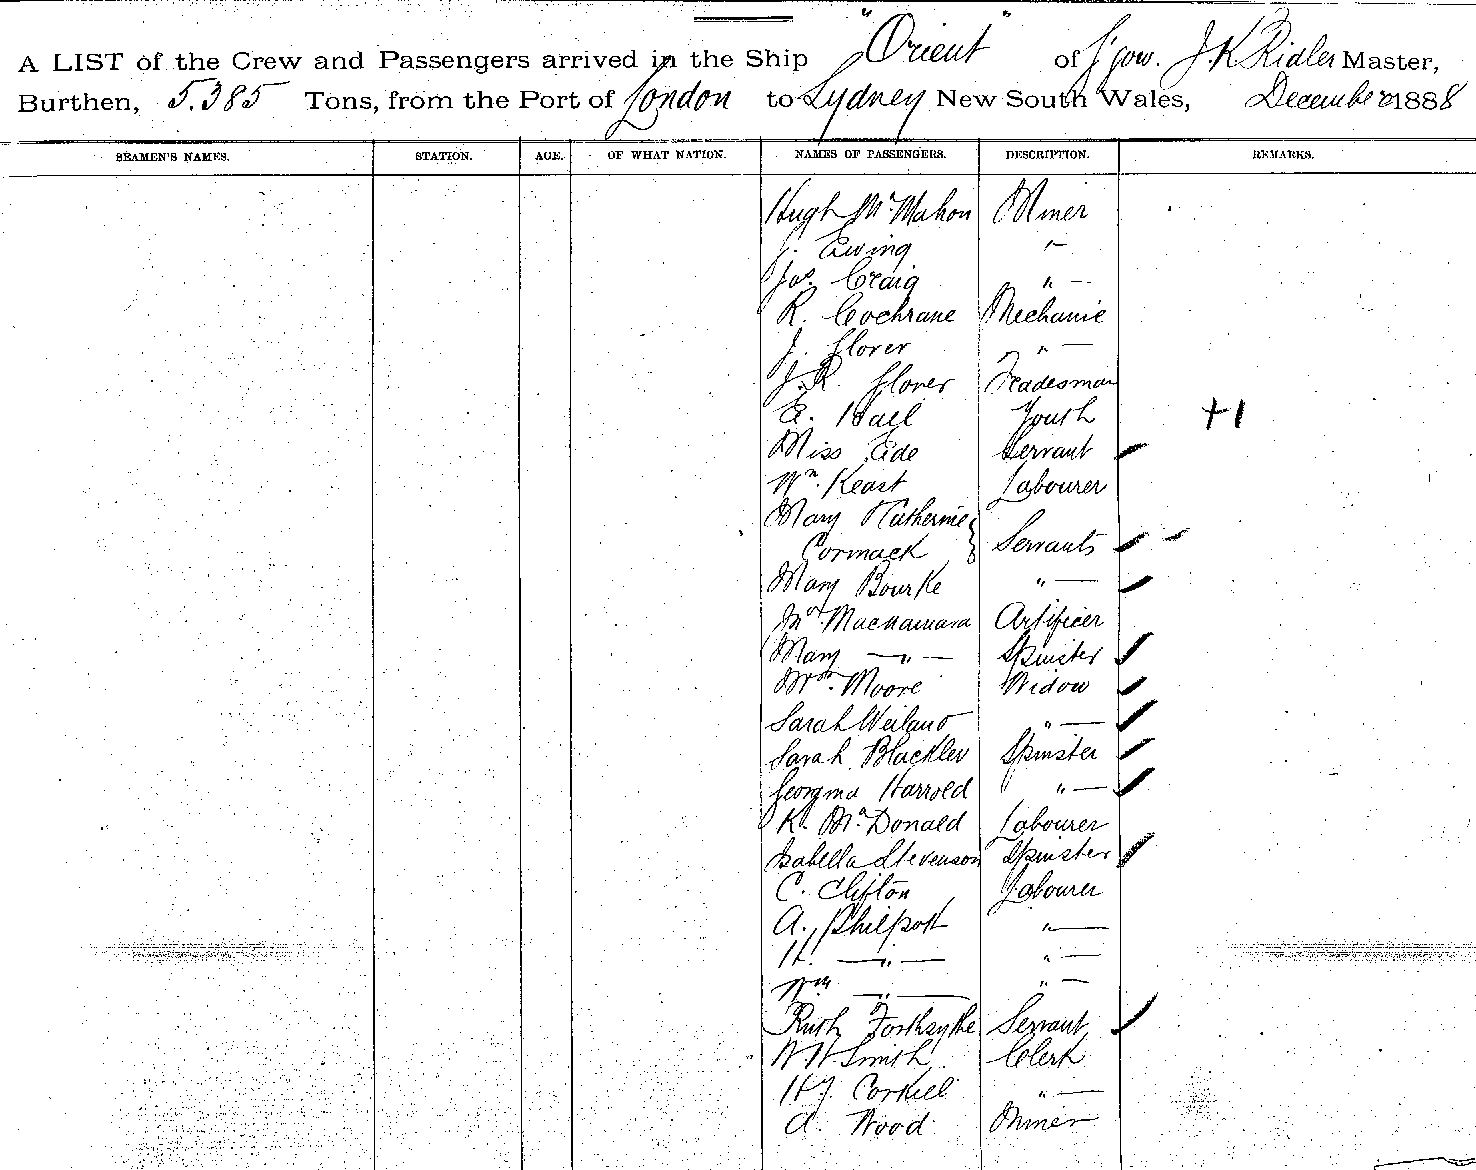 A LIST of the Crew and Passengers arrived in the Ship "Orient" of G'gow. J. K Ridler Master,
Burthen, 5.385 Tons, from the Port of London to Sydney New South Wales, December 1888
SEAMEN'S NAMES. STATION. AGE. OF WHAT NATION. NAMES OF PASSENGERS. DESCRIPTION. REMARKS.
Hugh McMahon Miner
J. Ewing "
Jas. Craig " —
R. Cochrane Mechanic
J. Glover " —
J. R. Glover Tradesman
E. Hall Youth +1
Miss Ede Servant
Wm. Keast Labourer
Mary Catherine
Cormack Servants
Mary Bourke " —
Mr Macnamara Artificer
Mary — " — Spinster
Mrs. Moore Widow
Sarah " —
Sarah Blackley Spinster
Georgina Harrold " —
K. McDonald Labourer
Isabella Stevenson Spinster
C. Clifton Labourer
A. Philpott " —
H. — " — " —
Wm — " — " —
Ruth Forthsythe Servant
W W Smith Clerk
H J. Corkill " —
A. Wood Miner